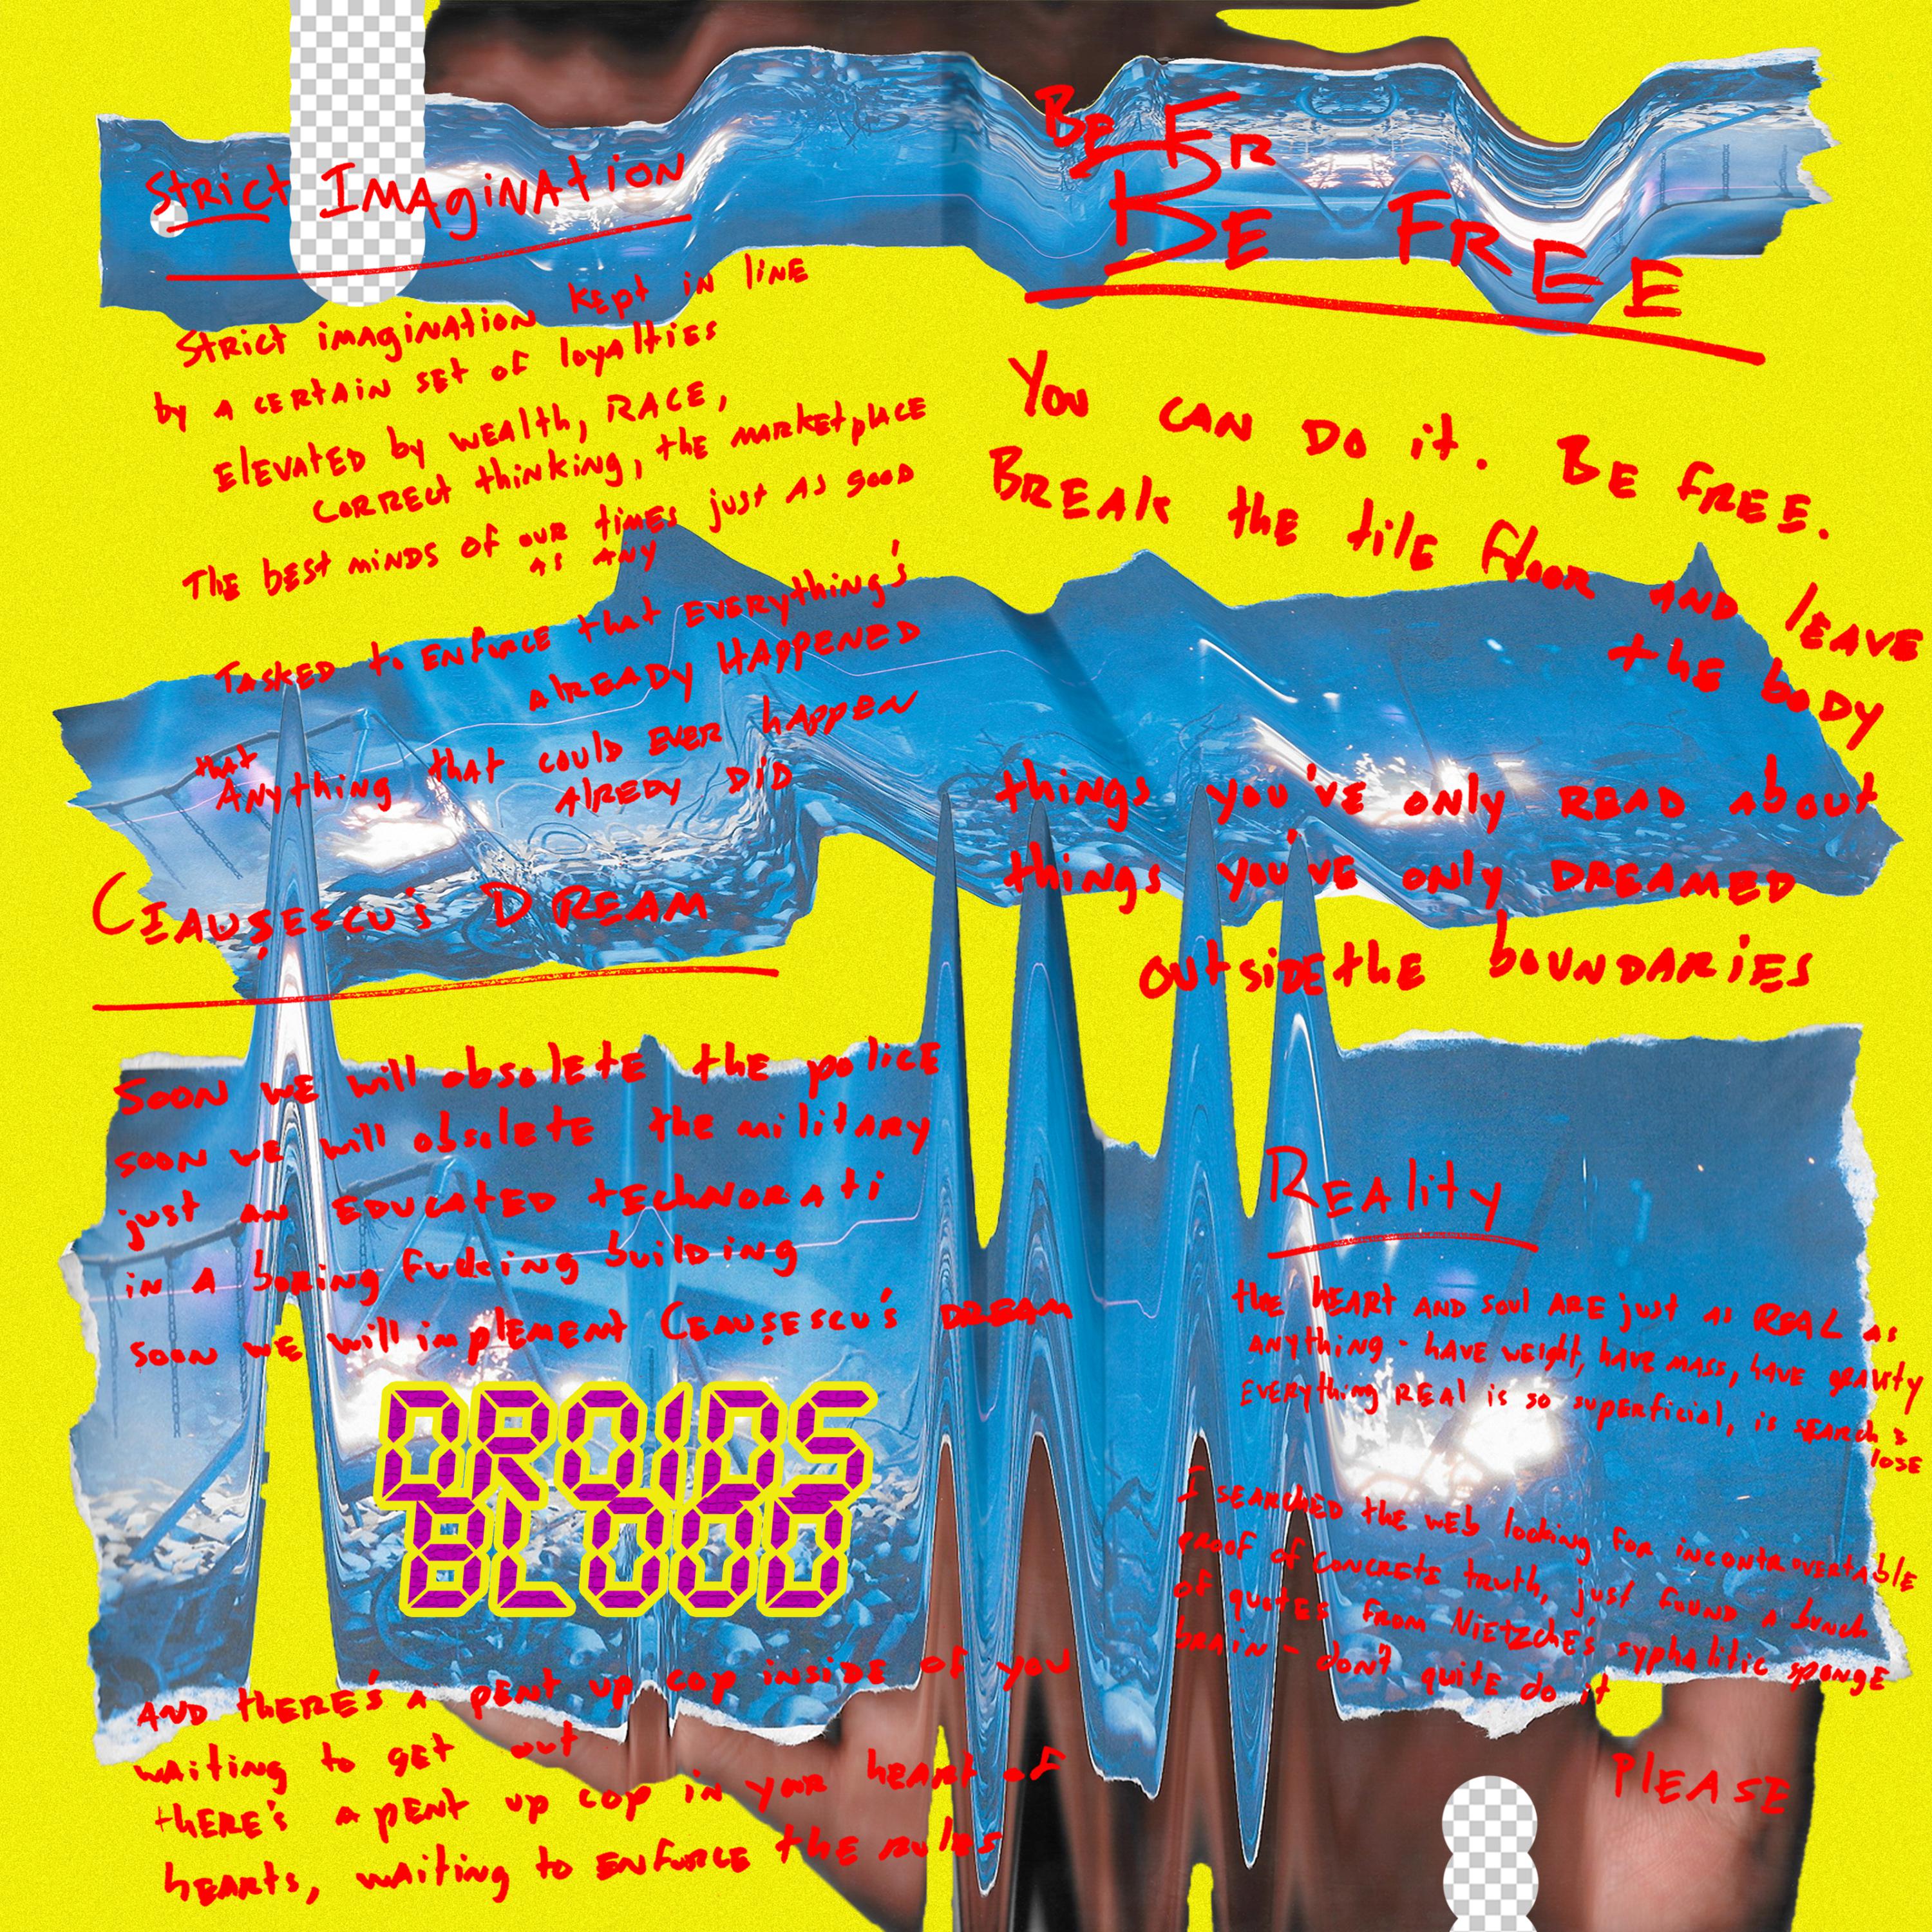 Strict IMAgiNAtion
Strict imagination kept in line
by a certain set of loyalties
Elevated by wealth, RACE,
correct thinking, the marketplace
The best minds of our times just as good
as any
Tasked to enforce that everything's
already happened
that
Anything that could ever happen
alredy did
Ceaușescu's Dream
Soon we will obsolete the police
soon we will obsolete the military
just an educated technorati
in a boring fucking building
soon we will implement Ceaușescu's DREAM
DROIDS
BLOOD
And there's a pent up cop inside of you
waiting to get out
there's a pent up cop in your heart of
hearts, waiting to enforce the rules
BE FR
BE FREE
You can do it. Be free.
Break the tile floor and leave
the body
things you've only read about
things you've only dreamed
outside the boundaries
Reality
the heart and soul are just as REAL as
anything - have weight, have mass, have gravity
everything real is so superficial, is search &
lose
I searched the web looking for incontrovertable
proof of concrete truth, just found a bunch
of quotes from Nietzche's syphalitic sponge
brain - don't quite do it
PLEASE